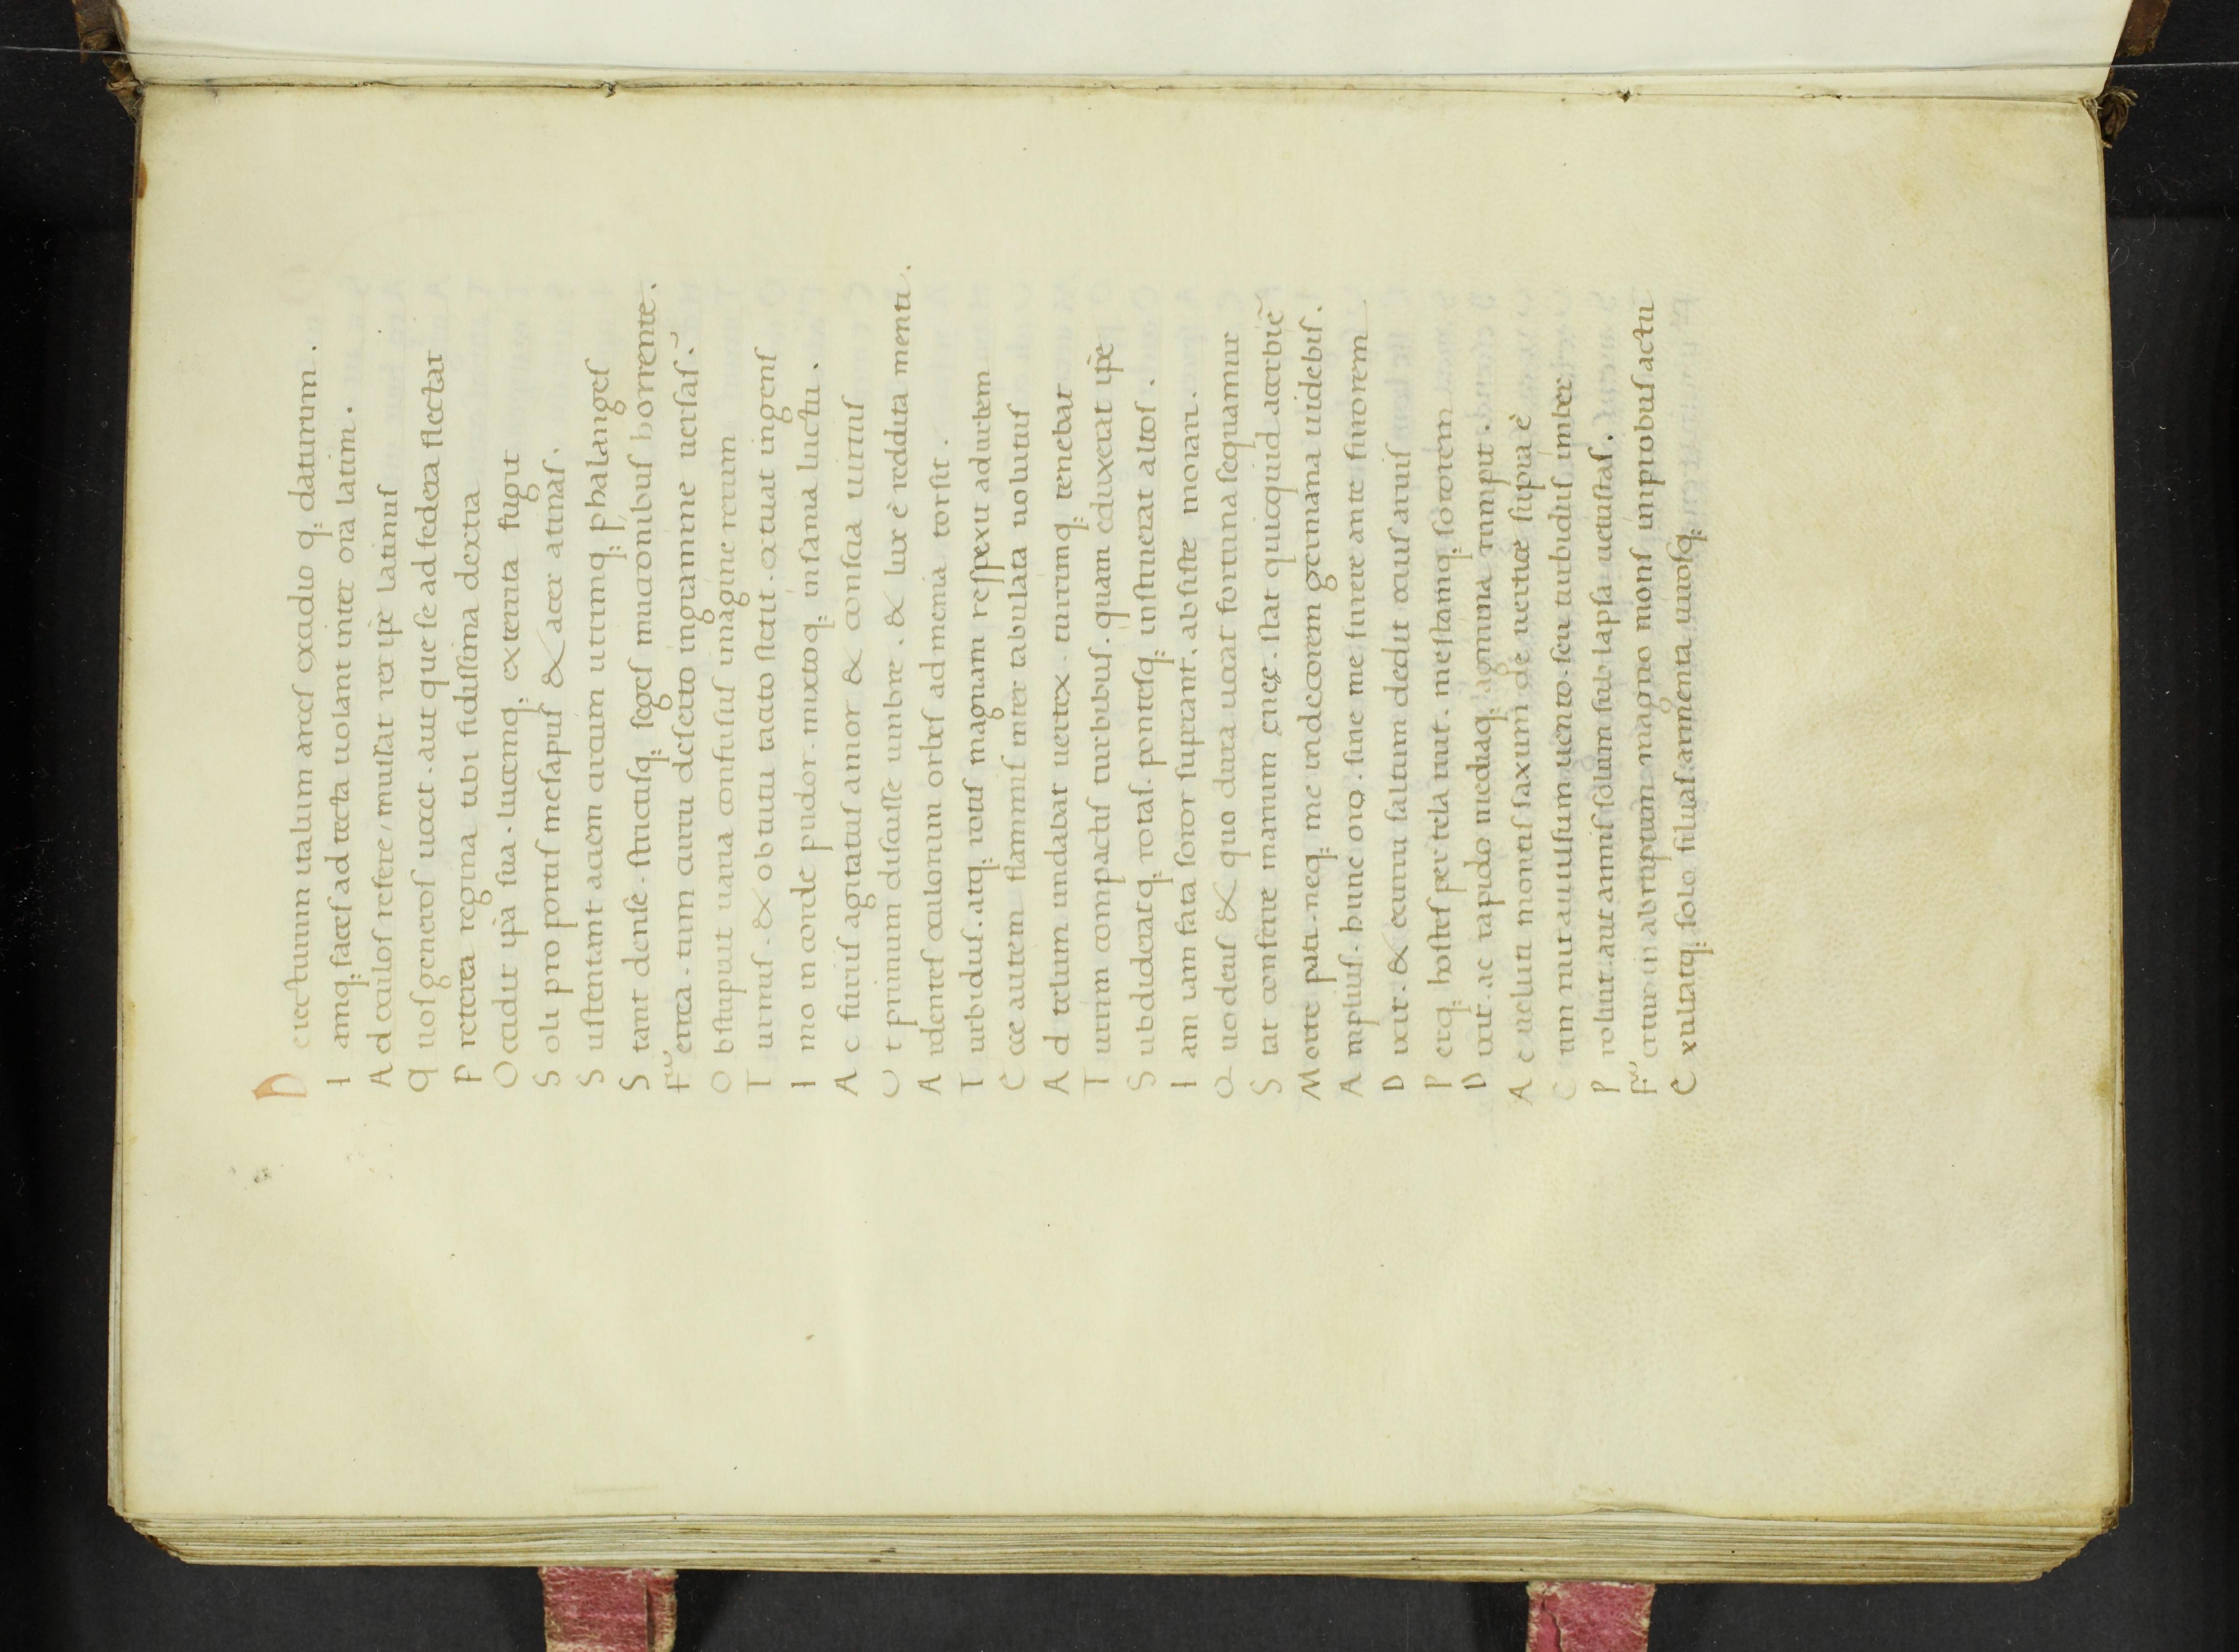 D eiecturum italum arceſ excidio q: daturum .
I amq: faceſ ad tecta uolant inter ora latini .
A d oculoſ refere / muſſat rex ip̄e latinuſ
Q uoſ generoſ uocet . aut que ſe ad federa flectat
P reterea regina tibi fidiſſima dextra
O ccidit ip̄a ſua . lucemq: exterrita fugit
S oli pro portiſ meſapuſ & acer atinaſ .
S uſtentant aciem circum utrimq: phalangeſ
S tant denſe . ſtrictiſq: ſegeſ mucronibuſ horrente .
F errea . tum curru deſerto ingramine uerſaſ .
O bſtupuit uaria confuſuſ imagine rerum
T urnuſ . & obtutu tacito ſtetit . extuat ingenſ
I mo in corde pudor . mixto q: inſania luctu .
A c furiiſ agitatuſ amor & conſcia uirtuſ
U t primum diſcuſſe umbre . & lux è reddita menti .
A rdenteſ oculorum orbeſ ad menia torſit .
T urbiduſ . atq: rotiſ magnam reſpexit adurbem
E cce autem flammiſ inter tabulata uolutuſ
A d celum undabat uertex . turrimq: tenebat
T urrim compactiſ turbibuſ . quam eduxerat ip̄e
S ubdideratq: rotaſ . ponteſq: inſtruerat altoſ .
I am iam fata ſoror ſuperant . abſiſte morari .
Q uo deuſ & quo dura uocat fortuna ſequamur
S tat conferre manum ęneę . ſtat quicquid acerbi ē
M orte pati . neq: me indecorem germana uidebiſ .
A mpliuſ . hunc oro . ſine me furere ante furorem
D ixit . & ecurru ſaltum dedit ociuſ aruiſ
P erq: hoſteſ per tela ruit . meſtamq: ſororem
D erit . ac rapido mediaq: agmina rumpit .
A c ueluti montiſ ſaxum de uertice ſupra è
C um ruit auulſum uento . ſeu turbiduſ imber
P roluit . aut anniſ ſolum ſub lapſa uetuſtaſ .
F ertur in abruptum magno monſ improbuſ actu
E xultatq: ſolo . ſiluaſ . armenta uiroſq: